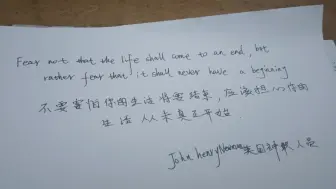 Fear not that the life shall come to an end, but
rather fear that it shall never have a beginning
不要害怕你的生活将要结束，应该担心你的
生活从未真正开始.
John henry Newman 英国神职人员